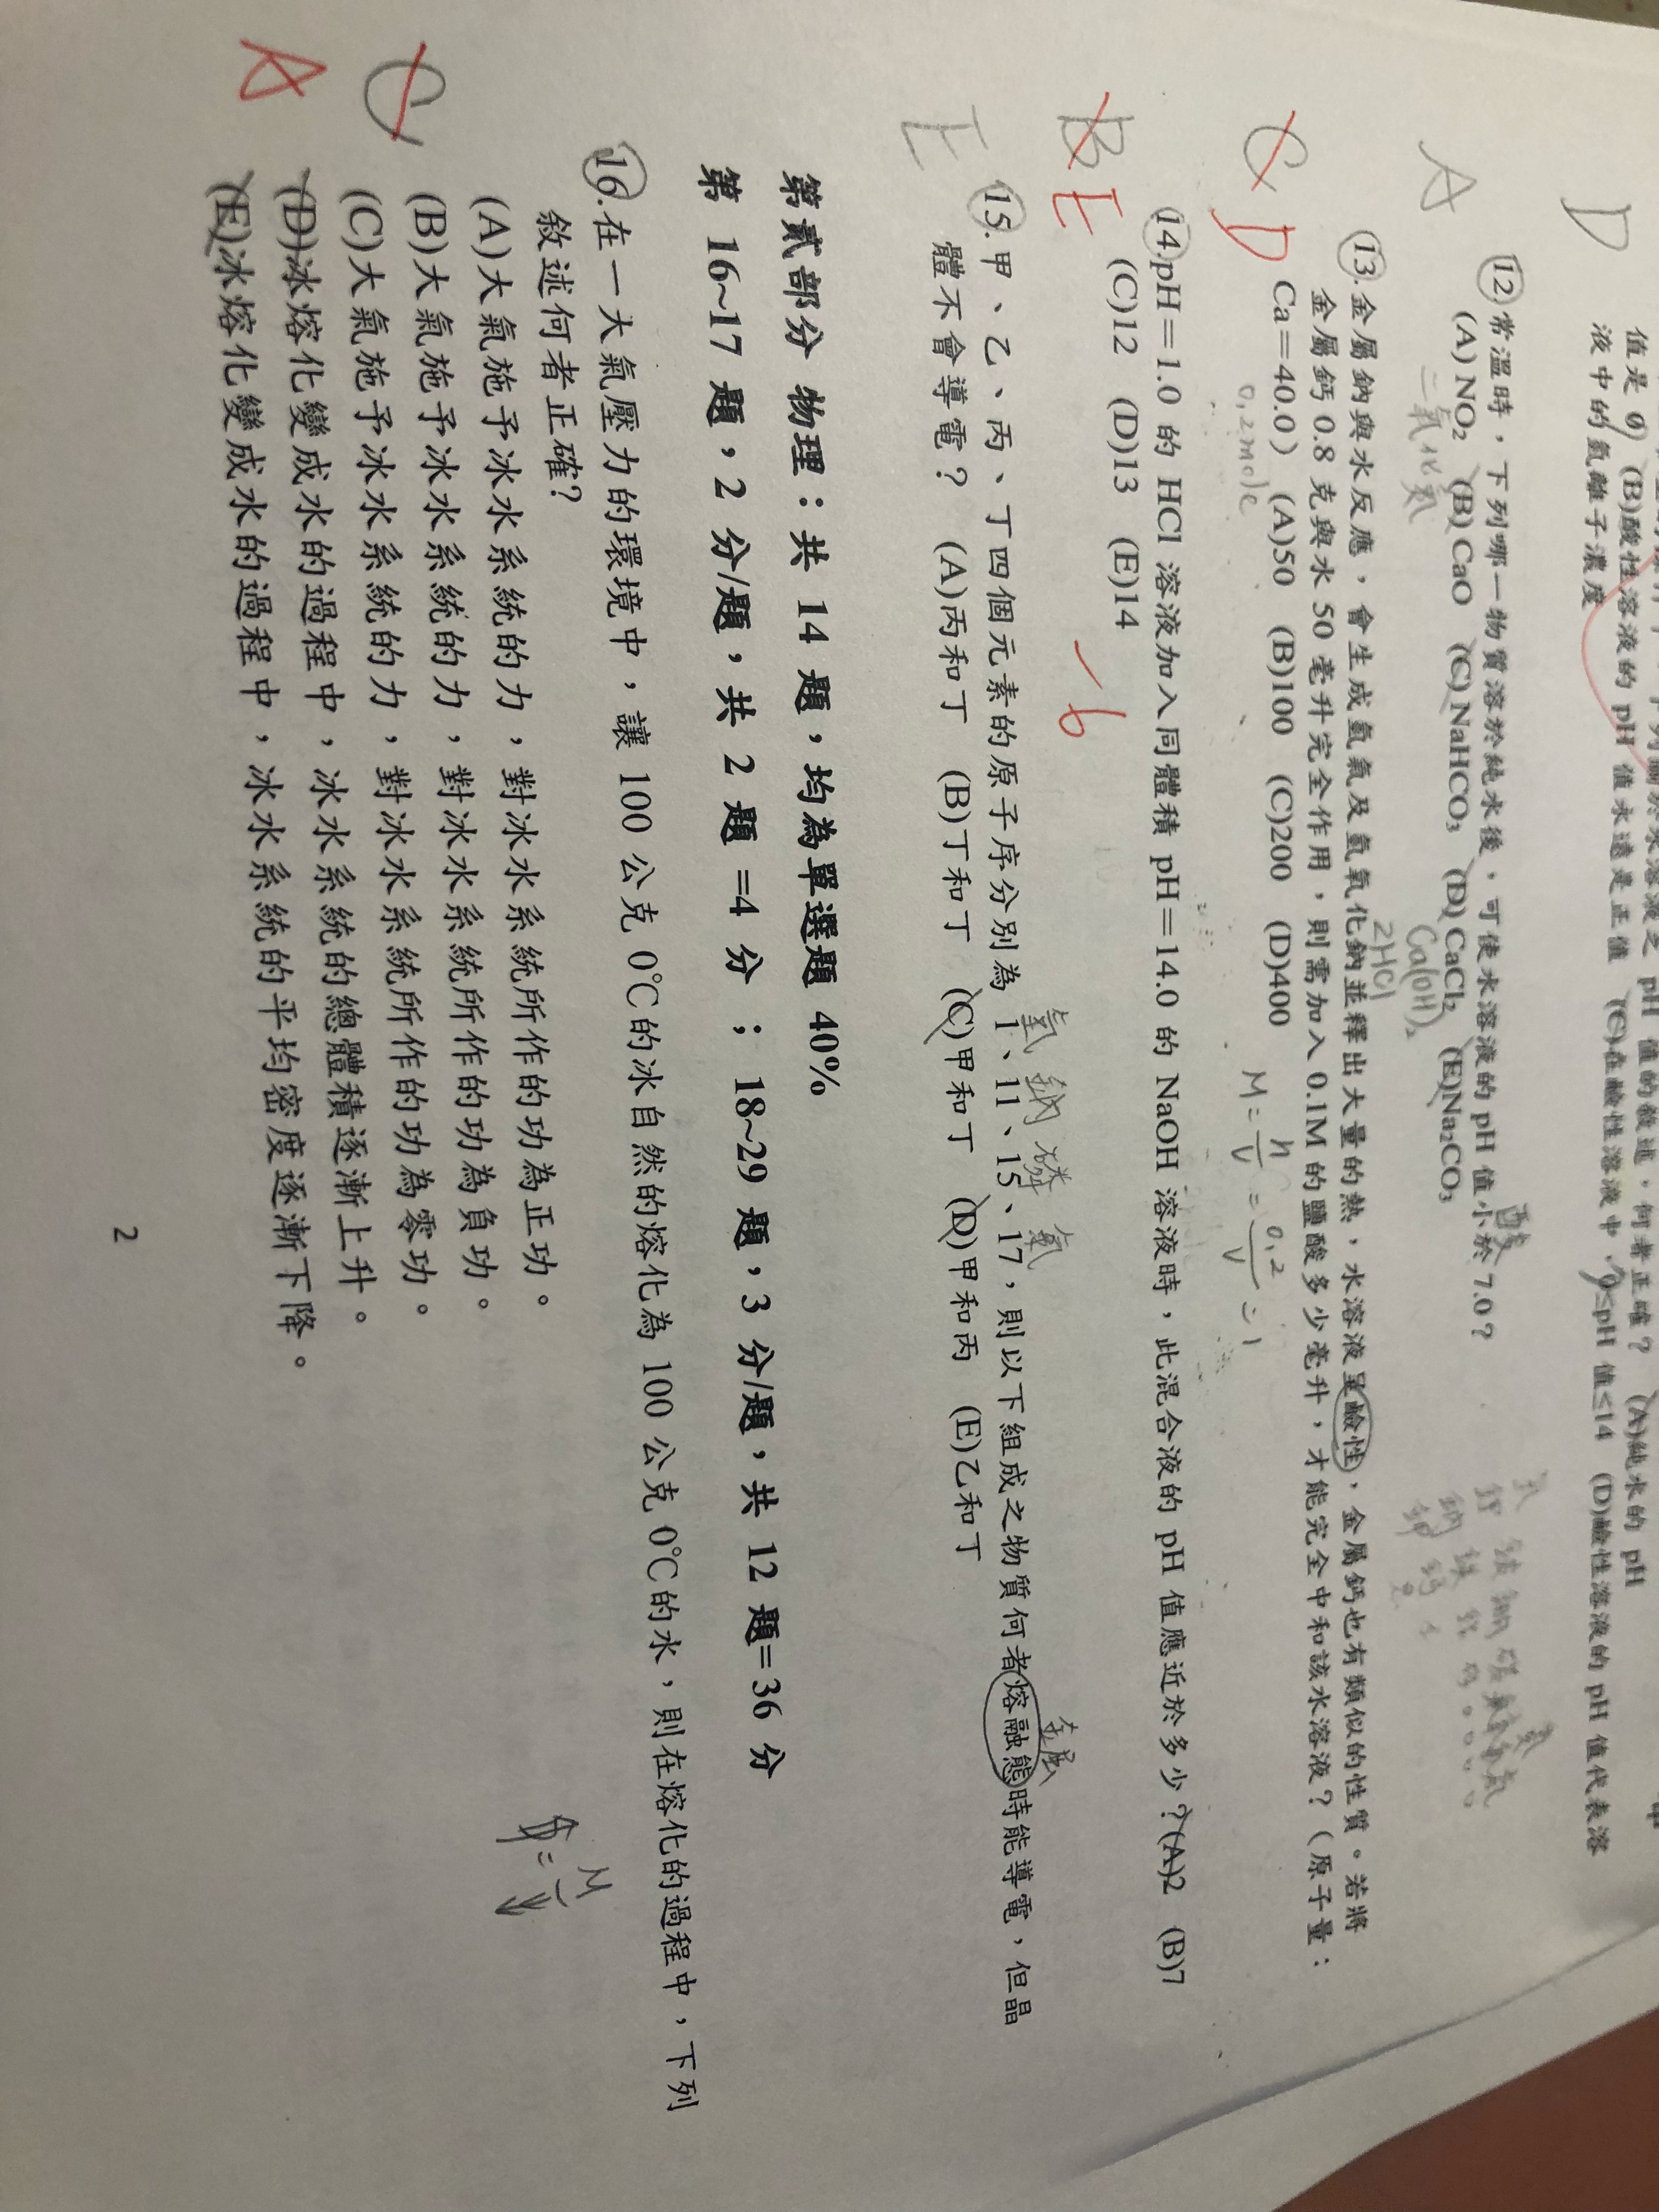 值是 0 (B)酸性溶液的 pH 值永遠是正值 (C)在鹼性溶液中，0≤pH 值≤14 (D)鹼性溶液的 pH 值代表溶
液中的氫離子濃度
D
12.常溫時，下列哪一物質溶於純水後，可使水溶液的 pH 值小於 7.0？
酸
(A) NO₂ (B) CaO (C) NaHCO₃ (D) CaCl₂ (E)Na₂CO₃
A
二氧化氮
Ca(OH)₂
13.金屬鈉與水反應，會生成氫氣及氫氧化鈉並釋出大量的熱，水溶液呈鹼性，金屬鈣也有類似的性質。若將
2HCl
金屬鈣 0.8 克與水 50 毫升完全作用，則需加入 0.1M 的鹽酸多少毫升，才能完全中和該水溶液？（原子量：
Ca＝40.0） (A)50 (B)100 (C)200 (D)400
C D
0.2mole
M = n/V = 0.2/V = 1
14.pH＝1.0 的 HCl 溶液加入同體積 pH＝14.0 的 NaOH 溶液時，此混合液的 pH 值應近於多少？(A)2 (B)7
(C)12 (D)13 (E)14
B E
-6
氫 鈉 磷 氯
金屬
15.甲、乙、丙、丁四個元素的原子序分別為 1、11、15、17，則以下組成之物質何者熔融態時能導電，但晶
體不會導電？ (A)丙和丁 (B)丁和丁 (C)甲和丁 (D)甲和丙 (E)乙和丁
E
第貳部分 物理：共 14 題，均為單選題 40%
第 16~17 題，2 分/題，共 2 題 =4 分 ；18~29 題，3 分/題，共 12 題=36 分
16.在一大氣壓力的環境中，讓 100 公克 0℃的冰自然的熔化為 100 公克 0℃的水，則在熔化的過程中，下列
敘述何者正確？
(A)大氣施予冰水系統的力，對冰水系統所作的功為正功。
(B)大氣施予冰水系統的力，對冰水系統所作的功為負功。
(C)大氣施予冰水系統的力，對冰水系統所作的功為零功。
(D)冰熔化變成水的過程中，冰水系統的總體積逐漸上升。
(E)冰熔化變成水的過程中，冰水系統的平均密度逐漸下降。
C
A
2